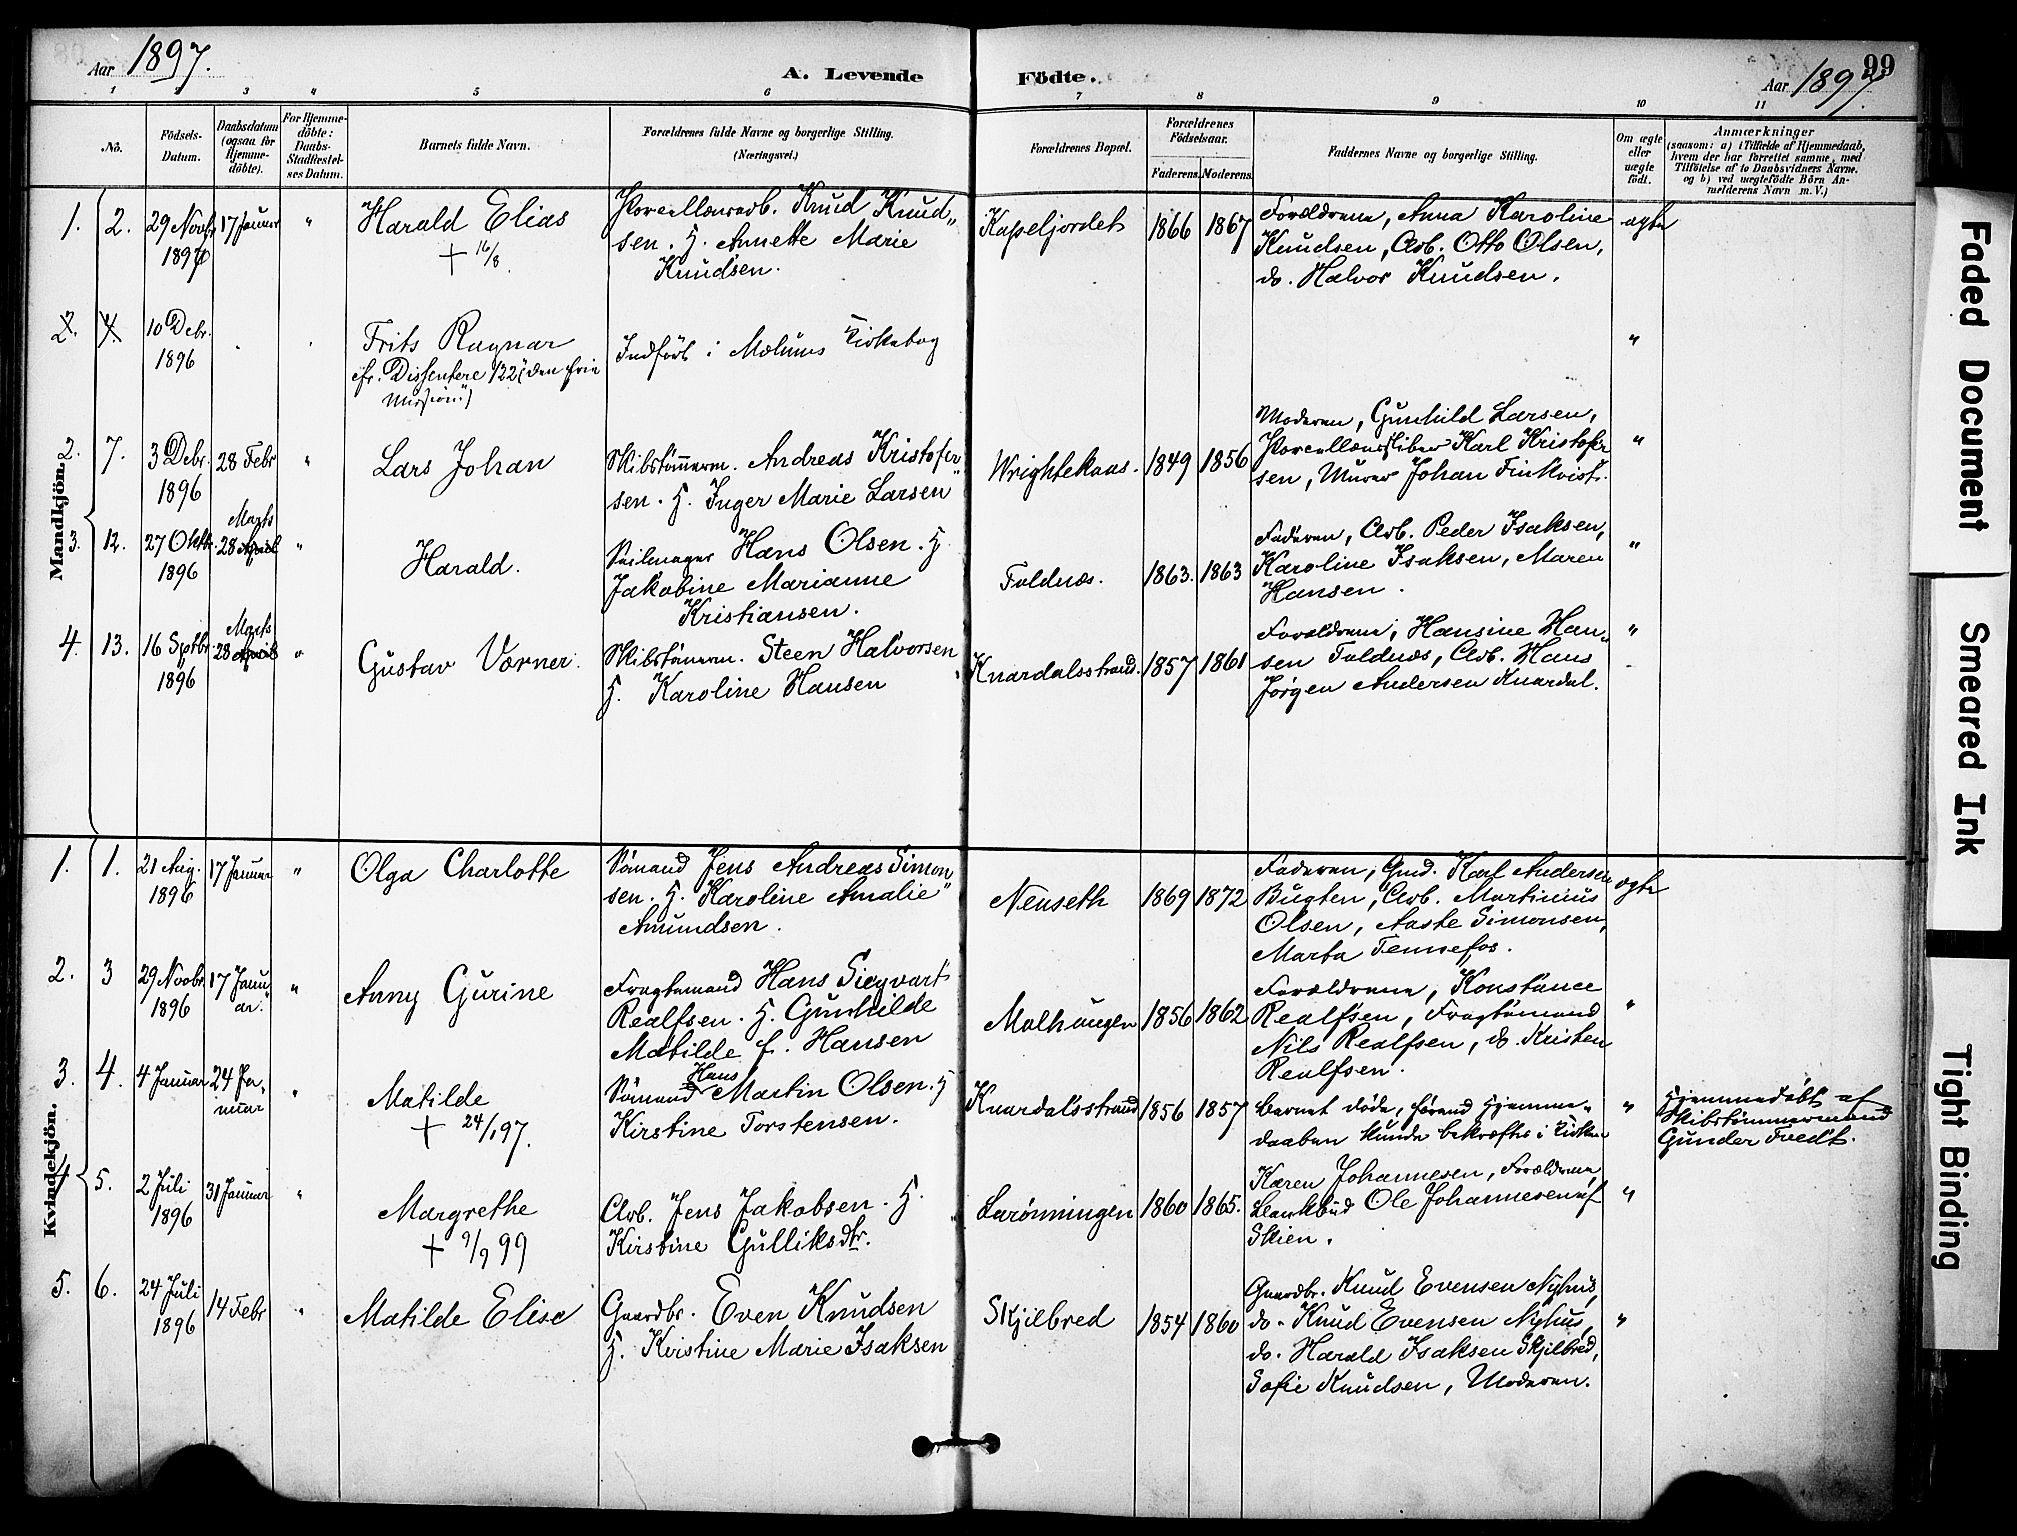 Aar 1897.
A. Levende Födte.
Aar 1897.
99
1 2 3 4 5 6 7 8 9 10 11
No.
Födsels-Datum.
Daabsdatum (ogsaa for Hjemme-döbte).
For Hjemme-döbte: Daabs-Stadfæstel-ses Datum.
Barnets fulde Navn.
Forældrenes fulde Navne og borgerlige Stilling. (Næringsvei.)
Forældrenes Bopæl.
Forældrenes Födselsaar.
Faderens. Moderens.
Faddernes Navne og borgerlige Stilling.
Om ægte eller uægte födt.
Anmærkninger
(saasom: a) i Tilfælde af Hjemmedaab,
hvem der har forrettet samme, med
Tilföielse af to Daabsvidners Navne.
og b) ved uægtefödte Börn An-
melderens Navn m. V.)
Mandkjön.
1. 2. 29 Novbr 1896 17 Januar "
Harald Elias
+ 16/8.
Porcellænsarb. Knud Knud-
sen. H. Annette Marie
Knudsen.
Kapeljordet 1866 1867
Forældrene, Anna Karoline
Knudsen, Arb. Otto Olsen,
do. Halvor Knudsen.
ægte
2. 4 10 Debr. 1896
Frits Ragnar
cfr. Dissentere 122 (den frie
Mission)
Indført i Mælums Kirkebog
"
2. 7. 3 Debr. 1896 28 Febr "
Lars Johan
Skibstømrm. Andreas Kristofer-
sen. H. Inger Marie Larsen
Wrightekaas. 1849 1856
Moderen, Gunhild Larsen,
Porcellænssliber Karl Kristofer
sen, Murer Johan Finkvist.
"
3. 12. 27 Oktbr. 1896 Marts 28 April "
Harald.
Seilmager Hans Olsen. H
Jakobine Marianne
Kristiansen.
Foldnæs. 1863. 1863
Faderen, Arb. Peder Isaksen,
Karoline Isaksen, Maren
Hansen.
"
4. 13. 16 Septbr. 1896 Marts 28 April "
Gustav Værner.
Skibstømrm. Steen Halvorsen
H. Karoline Hansen
Knardalsstrand. 1857 1861
Forældrene, Hansine Han-
sen Foldnæs, Arb. Hans
Jørgen Andersen Knardal.
"
Kvindekjön.
1. 1. 21 Aug. 1896 17 Januar "
Olga Charlotte
Sømand Jens Andreas Simon
sen. H. Karoline Amalie
Amundsen.
Nenseth 1869 1872
Faderen, Gmd. Karl Andersen
Bugten, Arb. Martinius
Olsen, Aaste Simonsen,
Marta Tennefos.
ægte
2. 3 29 Novbr. 1896 17 Janu-ar. "
Anny Gurine
Fragtemand Hans Sigvart
Realfsen. H. Gunhilde
Matilde f. Hansen
Molhaugen 1856 1862
Forældrene, Konstance
Realfsen, Fragtemand
Nils Realfsen, do. Kristen
Realfsen.
"
3. 4. 4 Januar 24 Ja-nuar "
Matilde
+ 24/1 97.
Sømand Hans Martin Olsen. H
Kirstine Torstensen.
Knardalsstrand 1856 1857
Barnet døde, førend Hjemme-
daaben kunde bekræftes i Kirken
"
Hjemmedøbt af
Skibstømmermand
Gunder Tvedt.
4 5. 2 Juli 1896 31 Januar "
Margrethe
+ 9/9 99
Arb. Jens Jakobsen. H.
Kirstine Gulliksdtr.
Larønningen 1860 1865.
Karen Johannesen, Forældrene,
Bankbud Ole Johannesen af
Skien.
"
5. 6. 24 Juli 1896 14 Febr "
Matilde Elise
Gaardbr. Even Knudsen
H. Kristine Marie Isaksen
Skjelbred 1854 1860
Gaardbr. Knud Evensen Nyhus,
do. Knud Evensen Nyhus,
do. Harald Isaksen Skjelbred,
Sofie Knudsen, Moderen.
"
Faded Document
Smeared Ink
Tight Binding